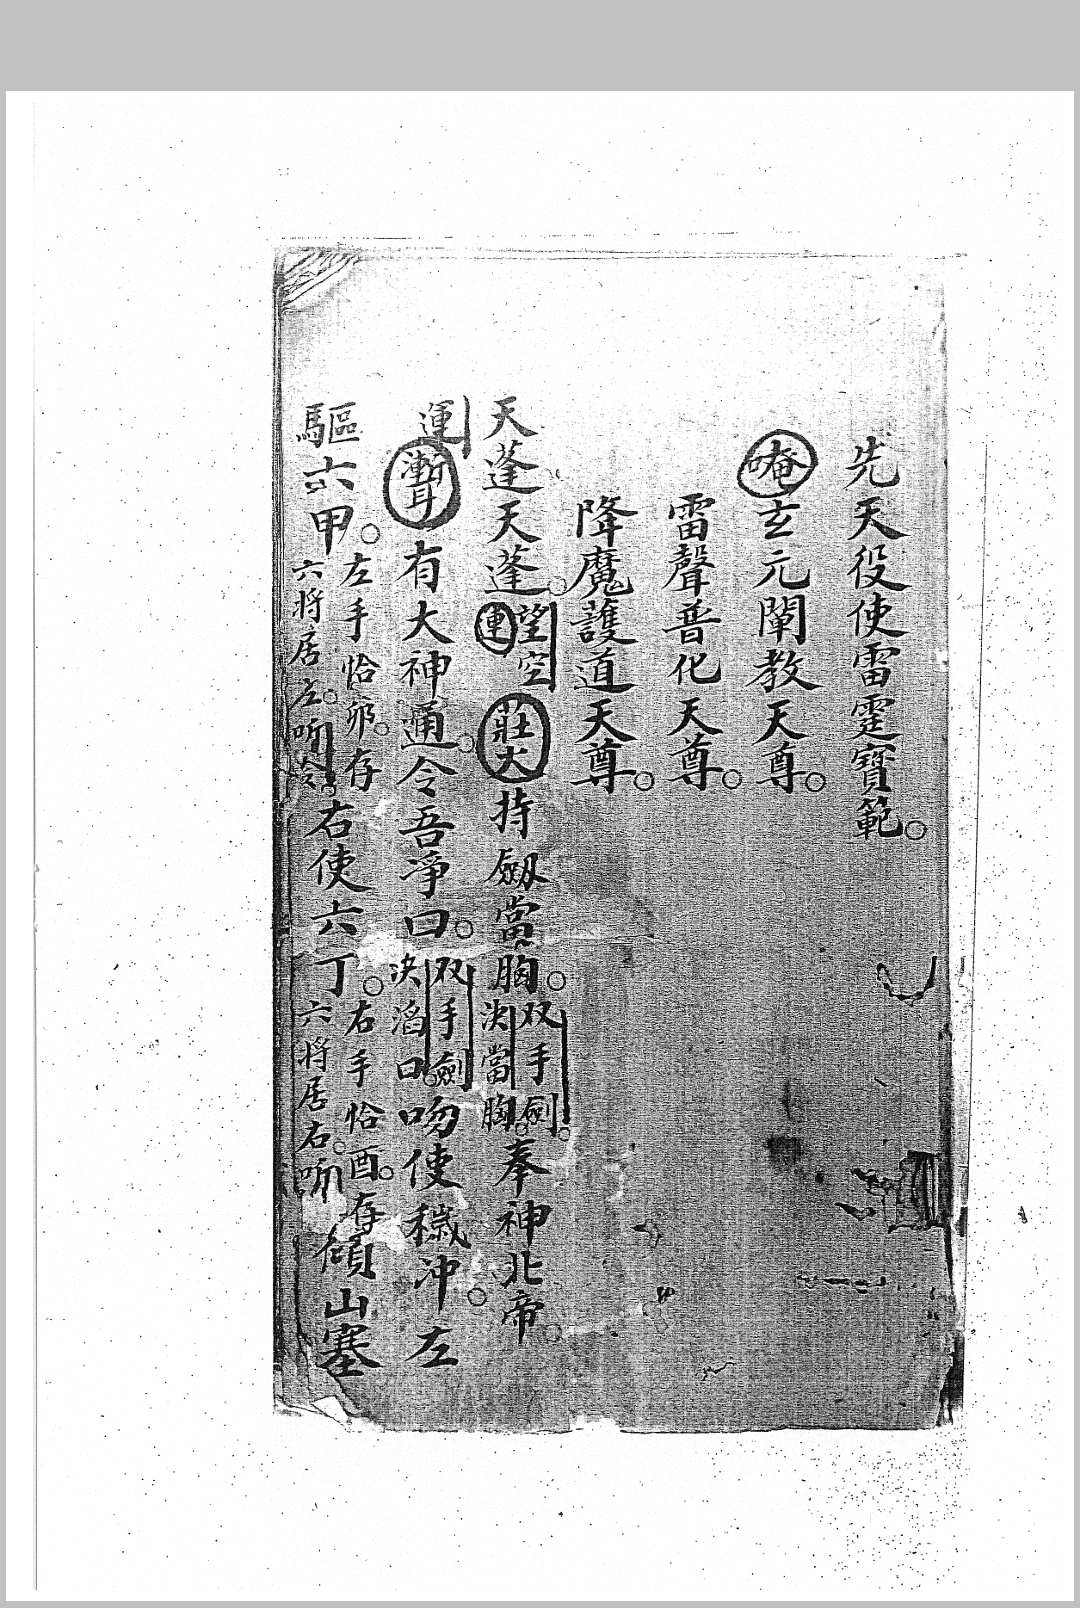 先天役使雷霆寶範。
唵玄元闡教天尊。
雷聲普化天尊。
降魔護道天尊。
天蓬天蓬。運望空莊大持劔當胸。双手劍決當胸。奉神北帝。
運聻有大神通。令吾淨口。双手劍決滔口。吻使穢冲。左
驅六甲。左手恰夘。存六将居左。吩令右使六丁。右手恰酉。存六将居右。吩傾山塞